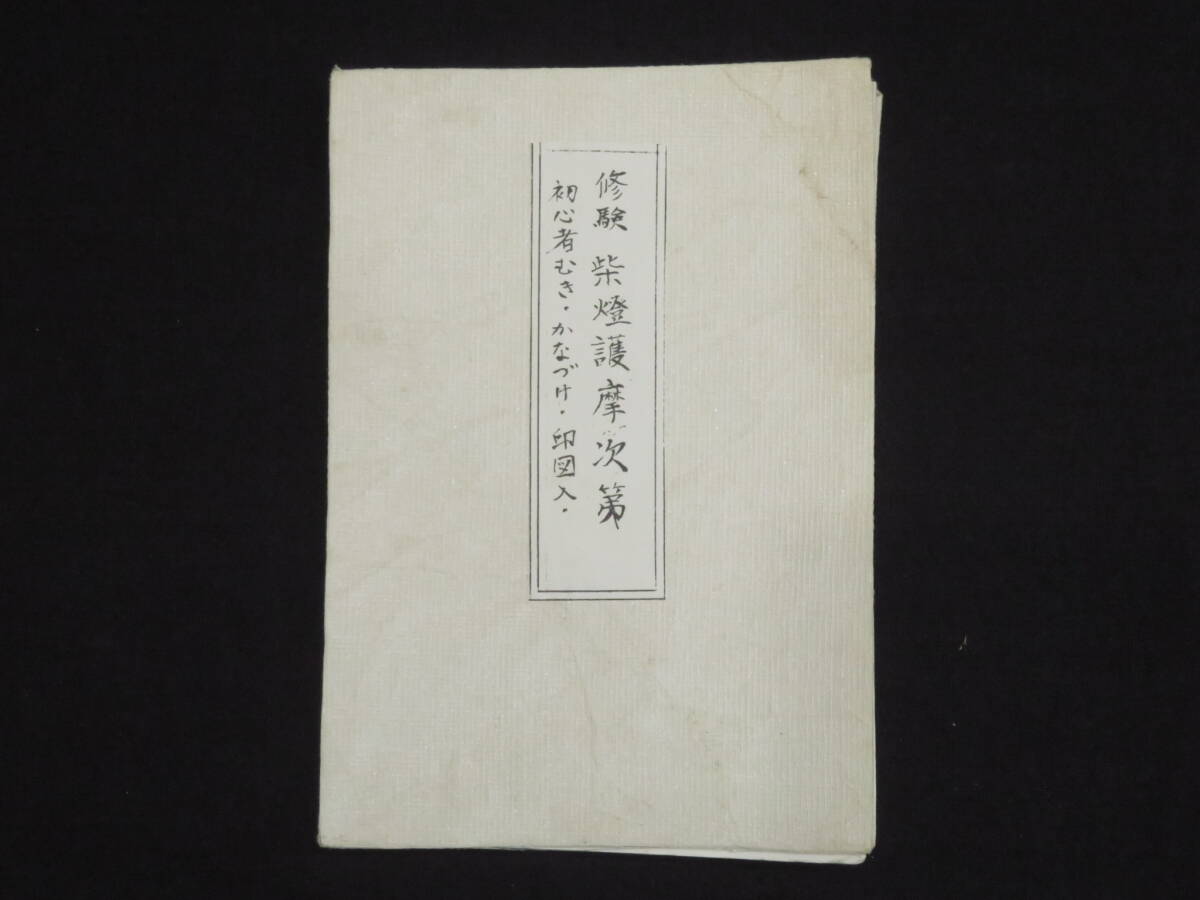 修験 柴燈護摩次第
初心者むき・かなづけ・印図入・